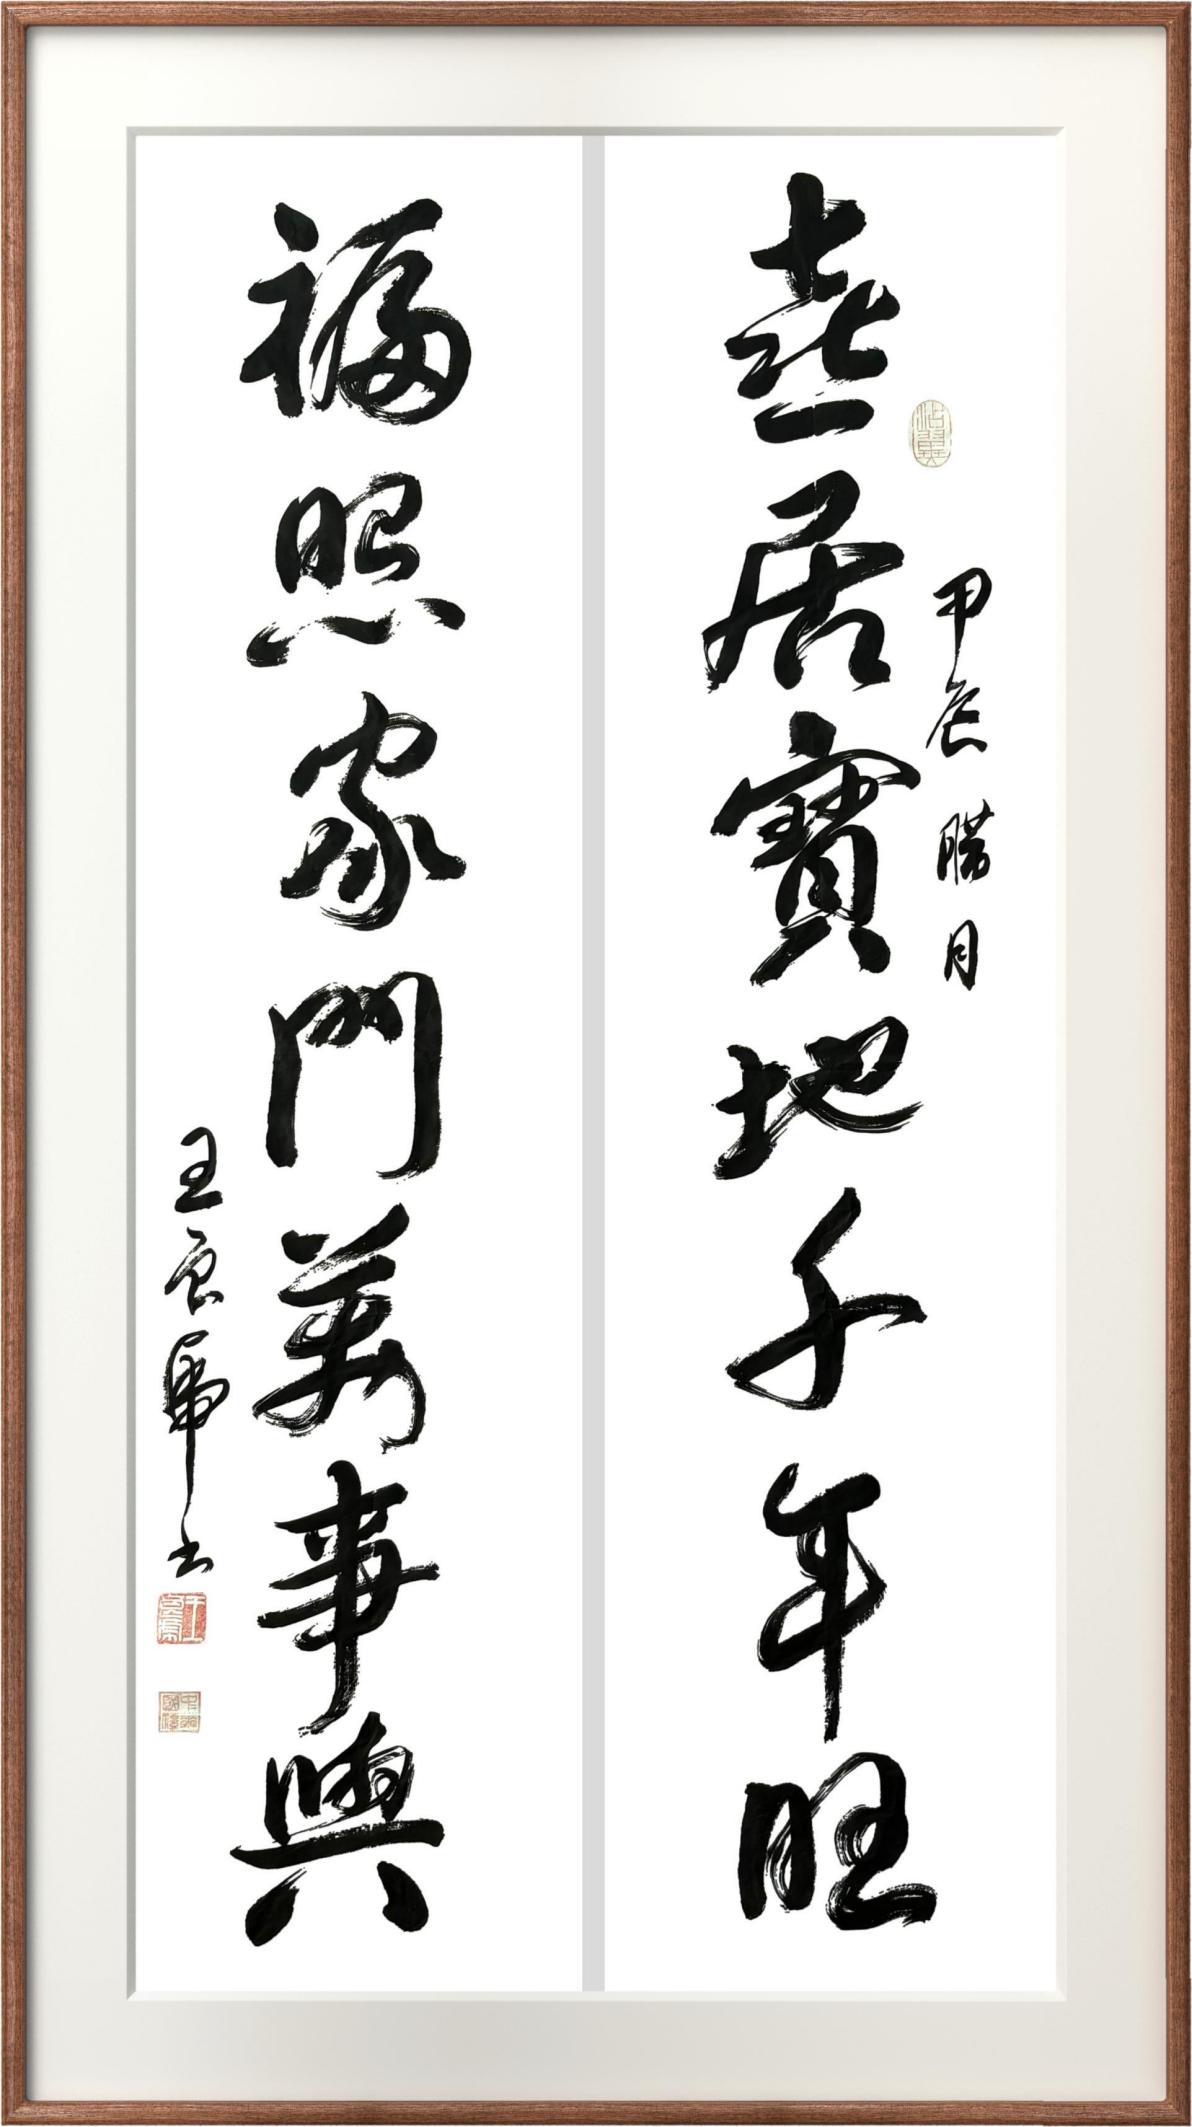 甲辰 腊月
喜居寶地千年旺
福照家門萬事興
王良虎书